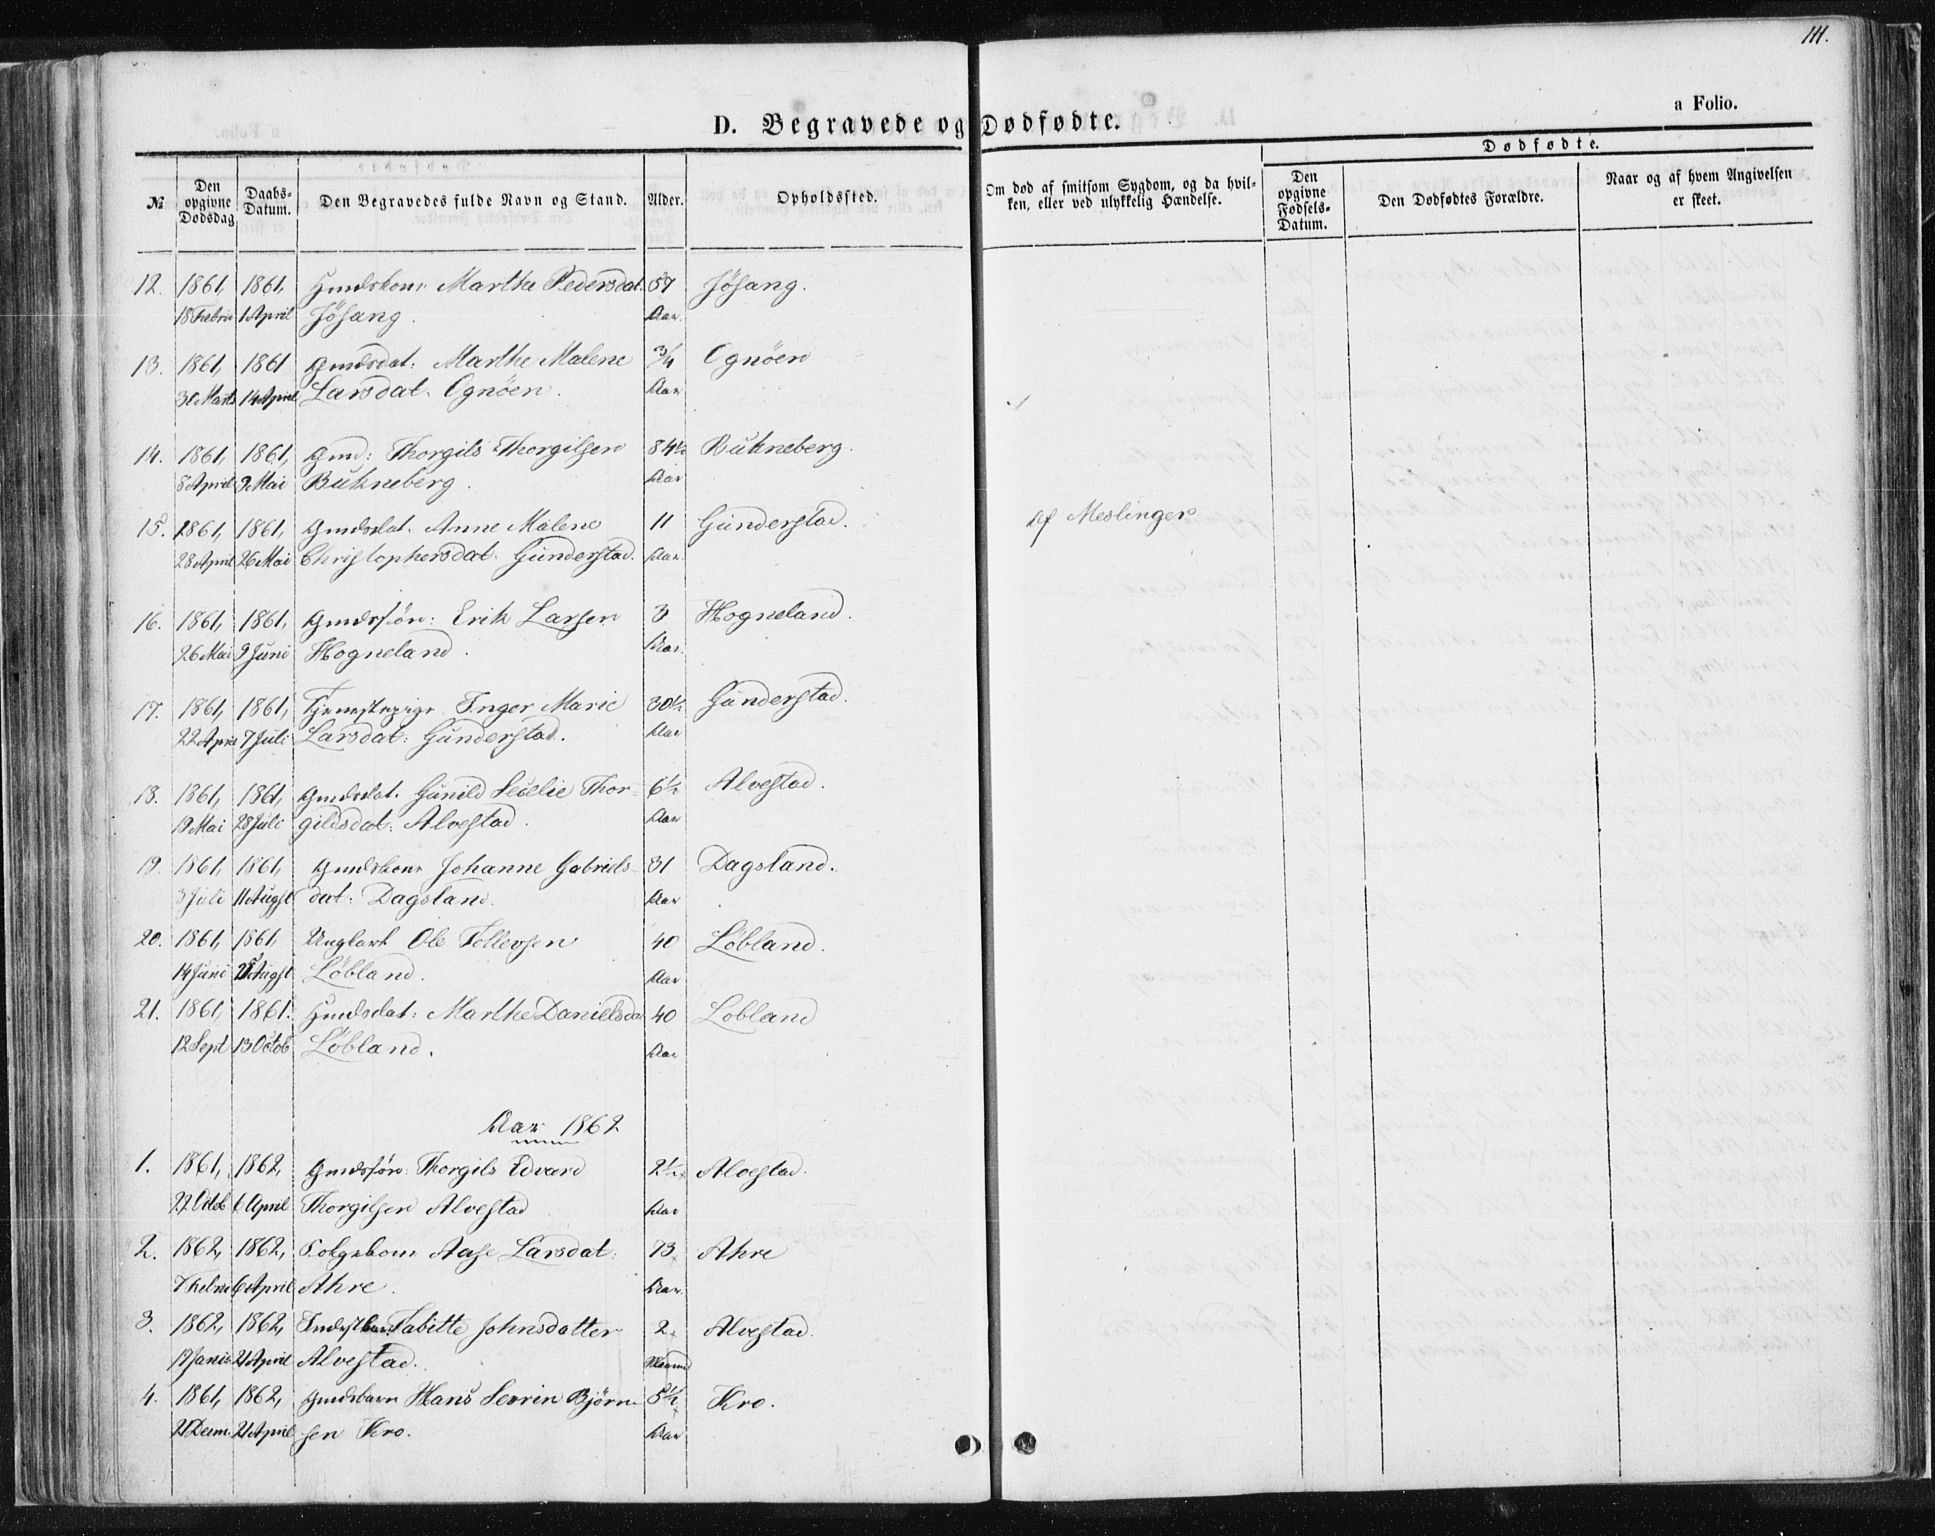 111.
a Folio.
D. Begravede og Dødfødte.
Dødfødte.
№ Den opgivne Dødsdag Daabs-Datum. Den Begravedes fulde Navn og Stand. Alder. Opholdssted. Om død af smitsom Sygdom, og da hvilken, eller ved ulykkelig Hændelse. Den opgivne Fødsels-Datum. Den Dødfødtes Forældre. Naar og af hvem Angivelsen er skeet.
12. 1861, 1861, Marthe Pedersdat. 57 Jøsang.
18 Febru 1 April Jøsang. Aar.
13. 1861, 1861 Gmdsdat: Marthe Malene 3/4 Ognøen
30 Marts 14 April Larsdat. Ognøen. Aar
14. 1861, 1861, Gmd: Thorgils Thorgilsen 84½ Bukneberg.
8 April 9 Mai Bukneberg. Aar
15. 1861, 1861, Gmdsdat. Anne Malene 11 Gunderstad. Af Meslinger
28 April 26 Mai Christophersdat. Gunderstad. Aar.
16. 1861, 1861, Gmdssøn: Erik Larsen 3 Hogneland.
26 Mai 9 Juni Hogneland. Aar.
17. 1861, 1861, Tjenestepige Inger Marie 30½ Gunderstad.
22 April 7 Juli Larsdat: Gunderstad. Aar
18. 1861, 1861, Gmdsdat. Gunild Thor- 6½ Alvestad.
19 Mai 28 Juli gildsdat: Alvestad. Aar
19. 1861, 1861, Gmdskone Johanne Gabriels- 31 Dagsland.
3 Juli 11 Augst dat: Dagsland. Aar
20. 1861, 1861, Ungkarl Ole Tollevsen 40 Løbland.
14 Juni Augst Løbland. Aar
21. 1861, 1861. Marthe Danielsdat 40 Lobland
12 Sept 13 Octob Løbland. Aar
Aar 1862
1. 1861, 1862, Gmdssøn: Thorgils Edvard 2½ Alvestad.
27 Octob 6 April Thorgilsen Alvestad Aar
2. 1862, 1862, Aase Larsdat: 73 Ahre
7 Febru 6 April Ahre. Aar.
3. 1862, 1862, Tabitte Johnsdatter 2 Alvestad.
19 Janu 21 April Alvestad. Maaned
4. 1861, 1862, Gmdsbarn Hans Serrin Bjørn- 5½ Kro.
21 Decm. 21 April sen Kro. Aar